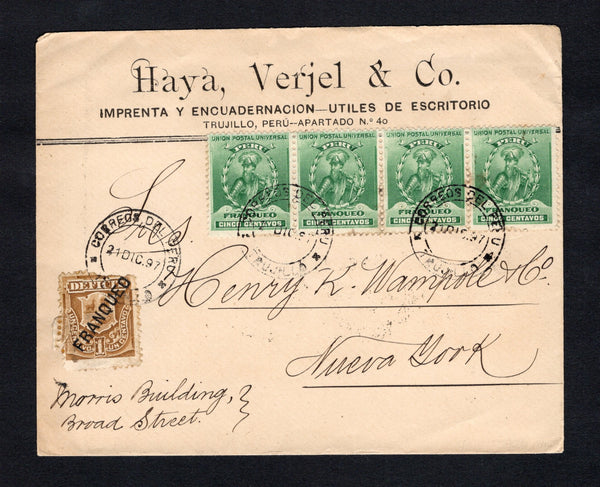 Haya, Verjel & Co.
IMPRENTA Y ENCUADERNACION—UTILES DE ESCRITORIO
TRUJILLO, PERÚ--APARTADO N.º 40
UNION POSTAL UNIVERSAL UNION POSTAL UNIVERSAL UNION POSTAL UNIVERSAL UNION POSTAL UNIVERSAL
PERU PERU PERU PERU
FRANQUEO FRANQUEO FRANQUEO FRANQUEO
CINCO CENTAVOS CINCO CENTAVOS CINCO CENTAVOS CINCO CENTAVOS
CORREOS DEL PERU
21 DIC. 97
CORREOS DEL PERU
DIC. 97
TRUJILLO
CORREOS DEL PERU
21 DIC. 97
TRUJILLO
Henry K. Wampole & Co.
Nueva York
DEFICIT
FRANQUEO
1
UN CENTAVO
Morris Building,
Broad Street.